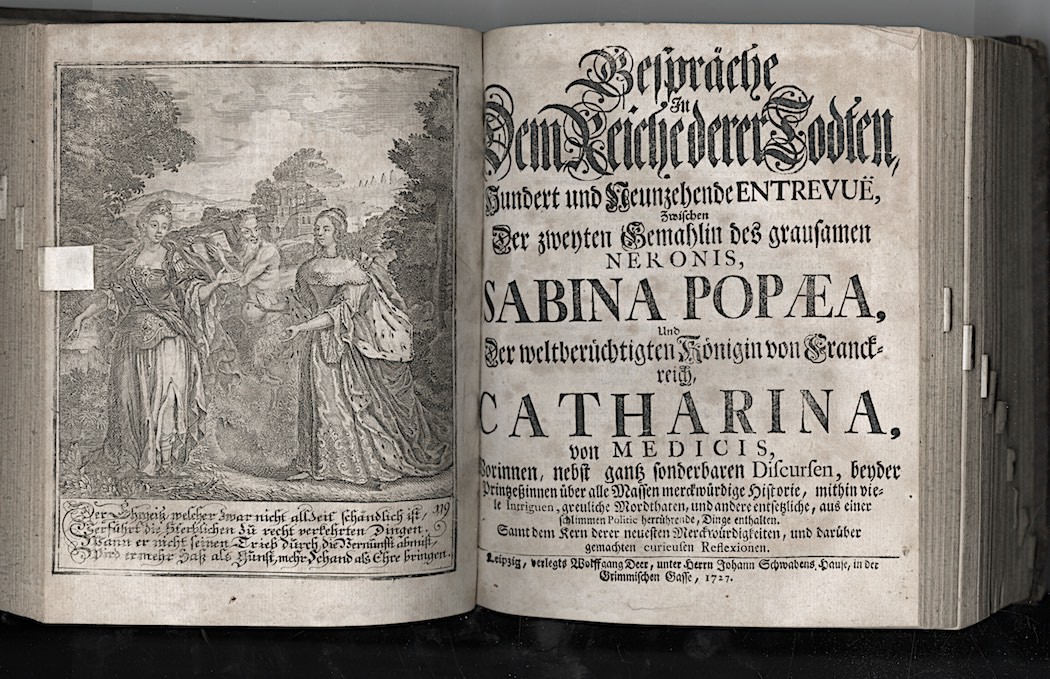 Der Ehrgeitz, welcher zwar nicht allzeit schändlich ist,
Verführt die Sterblichen zu recht verkehrten Dingen,
Wann er nicht seinen Trieb durch die Vernunfft abmißt,
Wird er mehr Haß als Gunst, mehr Schand als Ehre bringen.
119
Gespräche
In
Dem Reiche derer Todten,
Hundert und Neunzehende ENTREVUË,
Zwischen
Der zweyten Gemahlin des grausamen
NERONIS,
SABINA POPÆA,
Und
Der weltberüchtigten Königin von Franck-
reich,
CATHARINA,
von MEDICIS,
Worinnen, nebst gantz sonderbaren Discursen, beyder
Printzeßinnen über alle Massen merckwürdige Historie, mithin vie-
le Intriguen, greuliche Mordthaten, und andere entsetzliche, aus einer
schlimmen Politic herrührende, Dinge enthalten.
Samt dem Kern derer neuesten Merckwürdigkeiten, und darüber
gemachten curieusen Reflexionen.
Leipzig, verlegts Wolffgang Deer, unter Herrn Johann Schwabens Hause, in der
Grimmischen Gasse, 1727.